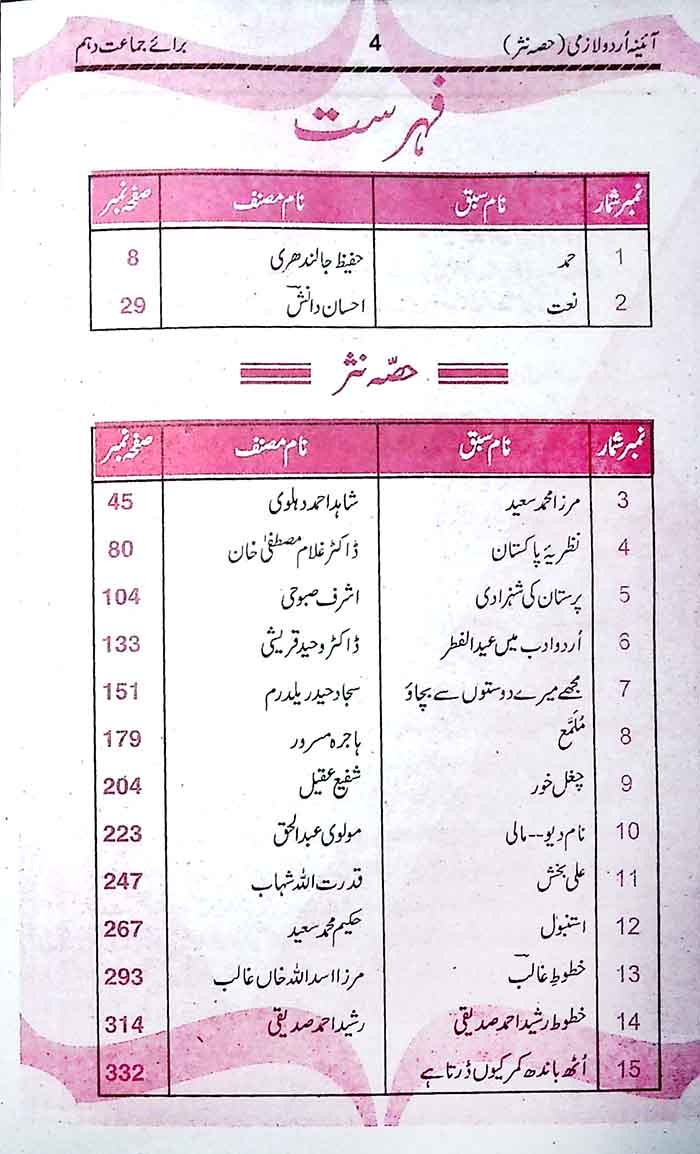 آئینہ اُردو لازمی (حصہ نثر) 4 برائے جماعت دہم
فہرست
نمبر شمار نام سبق نام مصنف صفحہ نمبر
1 حمد حفیظ جالندھری 8
2 نعت احسان دانش 29
حصّہ نثر
نمبر شمار نام سبق نام مصنف صفحہ نمبر
3 مرزا محمد سعید شاہد احمد دہلوی 45
4 نظریۂ پاکستان ڈاکٹر غلام مصطفیٰ خان 80
5 پرستان کی شہزادی اشرف صبوحی 104
6 اُردو ادب میں عید الفطر ڈاکٹر وحید قریشی 133
7 مجھے میرے دوستوں سے بچاؤ سجاد حیدر یلدرم 151
8 مُلمَّع ہاجرہ مسرور 179
9 چغل خور شفیع عقیل 204
10 نام دیو--مالی مولوی عبدالحق 223
11 علی بخش قدرت اللہ شہاب 247
12 استنبول حکیم محمد سعید 267
13 خطوطِ غالب مرزا اسد اللہ خاں غالب 293
14 خطوط رشید احمد صدیقی رشید احمد صدیقی 314
15 اُٹھ باندھ کمر کیوں ڈرتا ہے 332